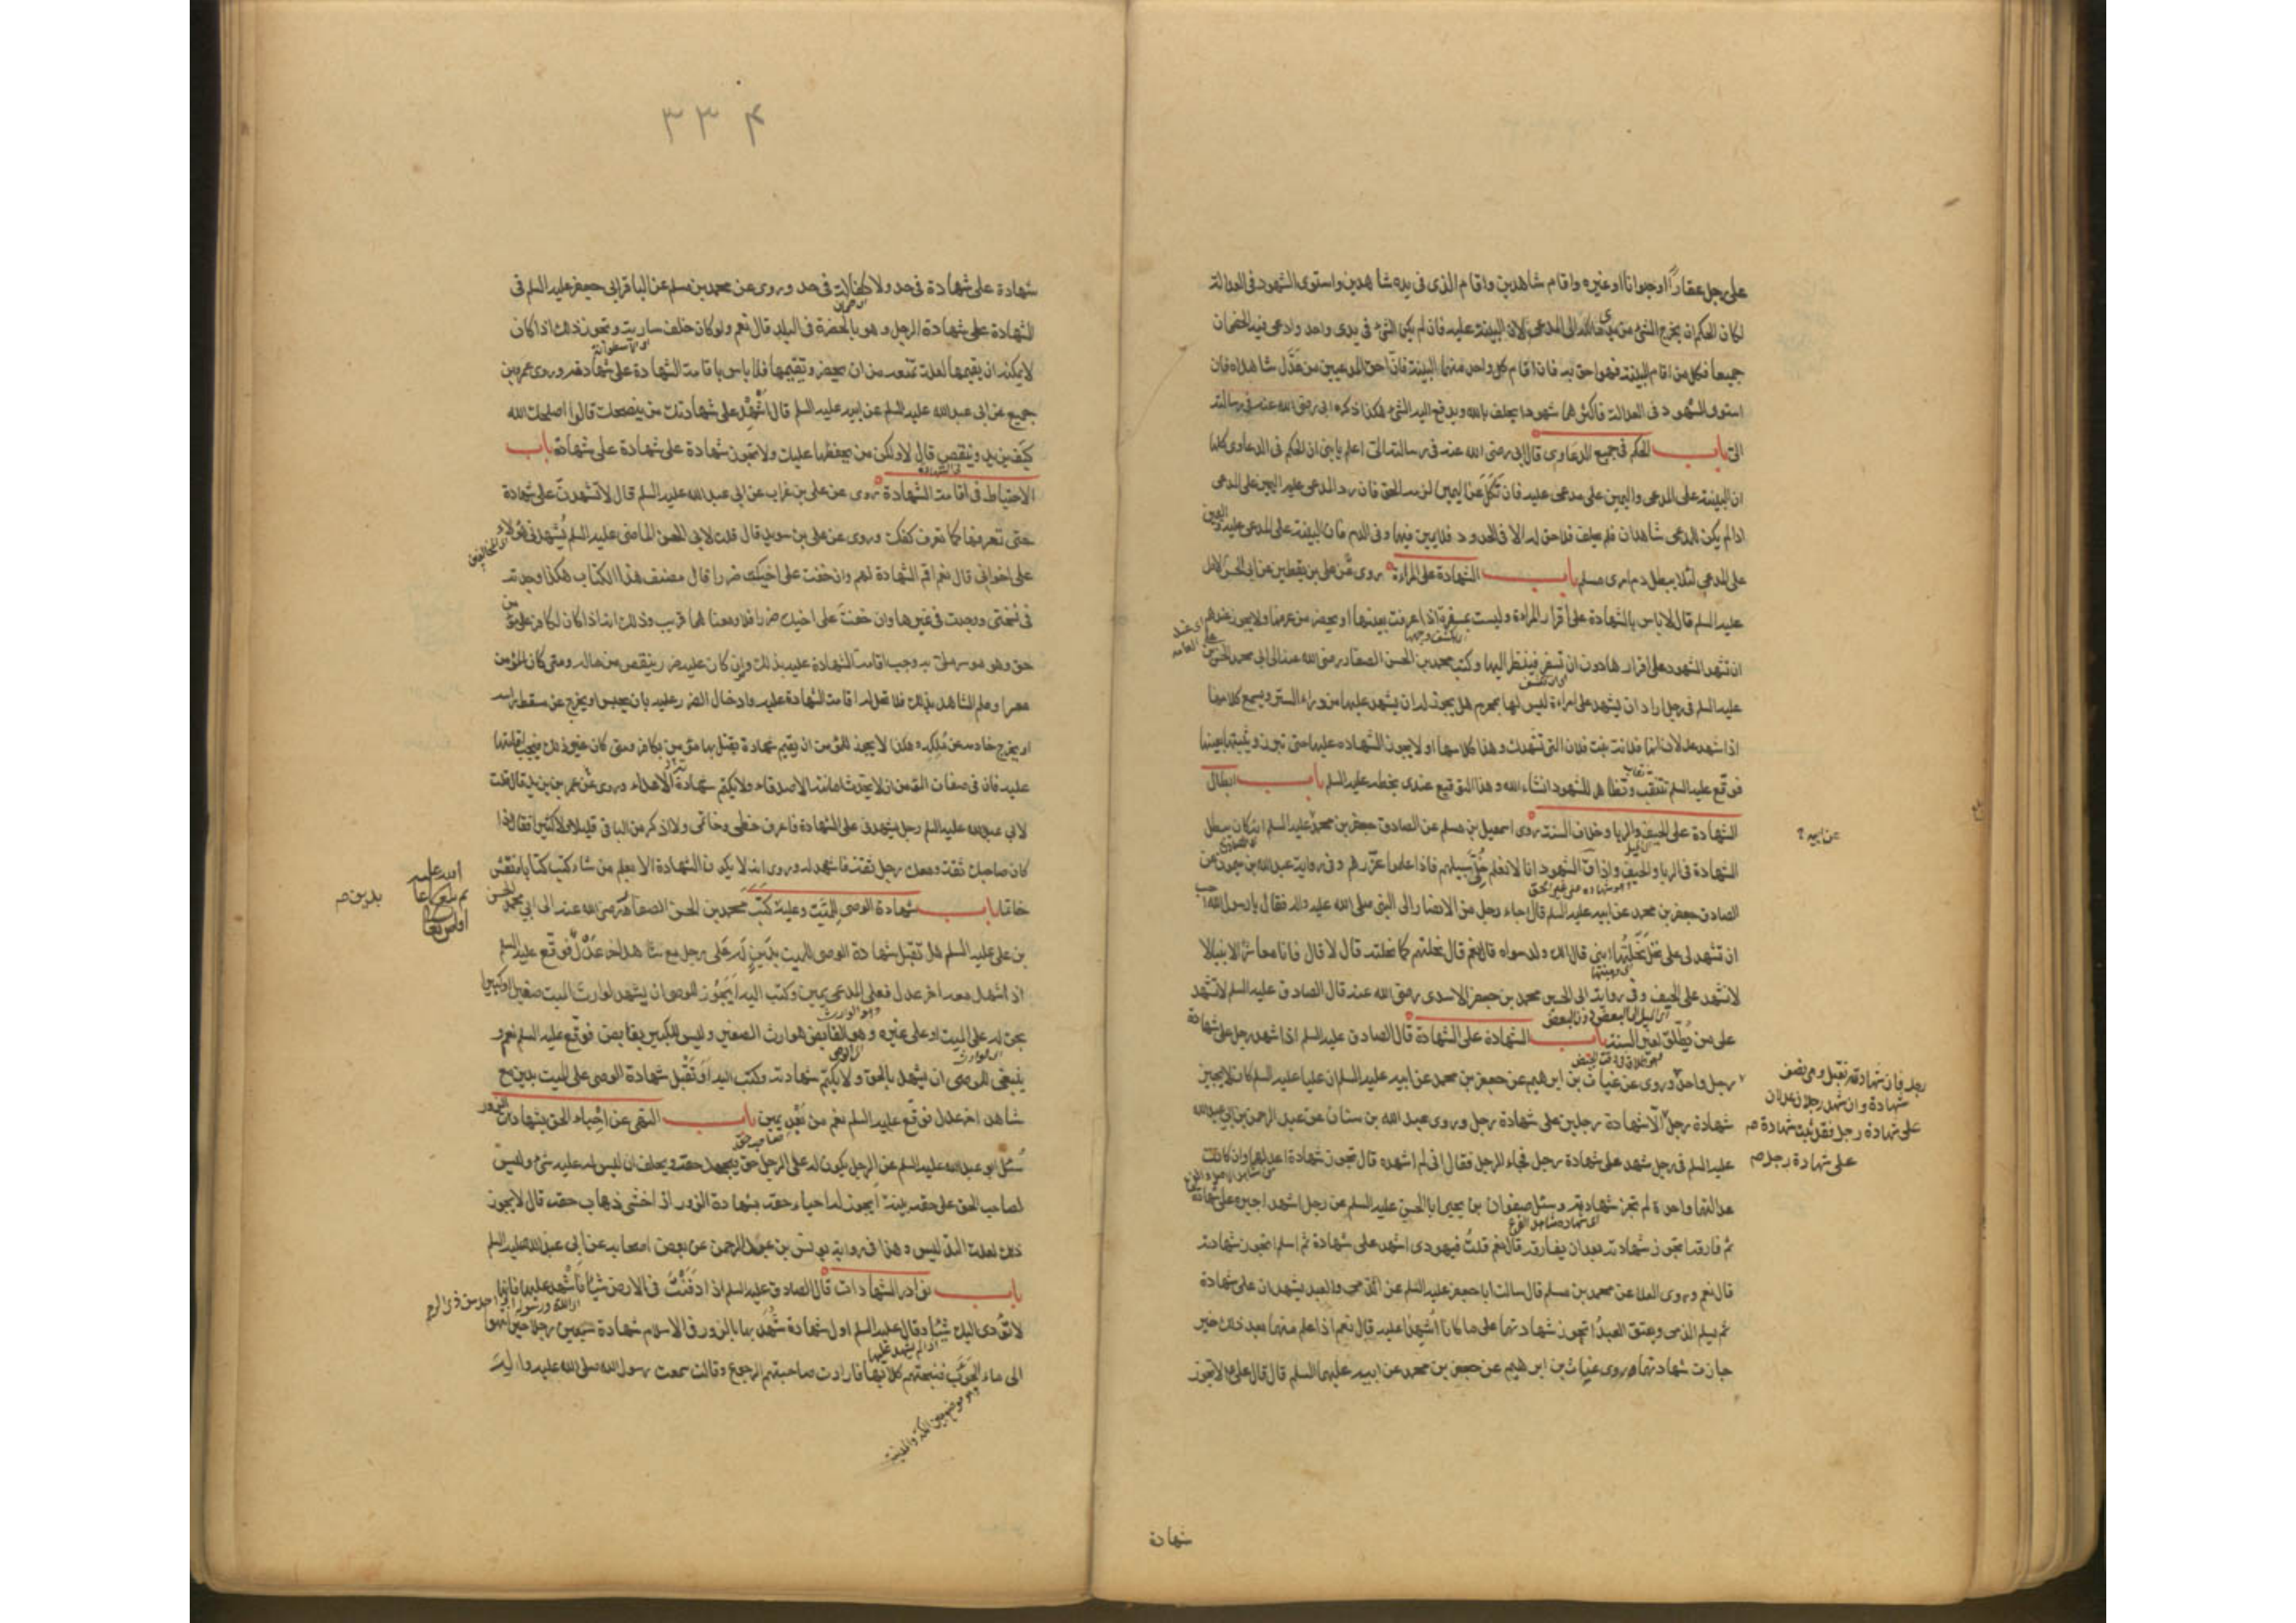 على رجل عقاراً او حيوانا او غيره واقام شاهدين واقام الذى فى يده شاهدين واستوى الشهود فى العدالة
لكان الحكم ان يخرج الشئ من يدى مالكه الى المدعى لان البينة عليه فان لم يكن الشئ فى يدى واحد وادعى فيه الخصمان
جميعا فكل من اقام البينة فهو احق به فان اقام كل واحد منهما البينة فان احق المدعيين من عدّل شاهداه فان
استوى الشهود فى العدالة فاكثرهما شهودا يحلف بالله ويدفع اليه الشئ هكذا ذكره ابى رضى الله عنه فى رسالته
الىّ باب الحكم فى جميع الدعاوى قال ابى رضى الله عنه فى رسالته الىّ اعلم يا بنى ان الحكم فى الدعاوى كلها
ان البينة على المدعى واليمين على مدعى عليه فان نَكَلَ عن اليمين لزمه الحق فان رد المدعى عليه اليمين على المدعى
اذا لم يكن للمدعى شاهدان فلم يحلف فلا حق له الا فى الحدود فلا يمين فيها وفى الدم فان البينة على المدعى عليه واليمين
على المدعى لئلا يبطل دم امرئ مسلم باب الشهادة على المراءة روى عن على بن يقطين عن ابى الحسن الاول
عليه السلم قال لا باس بالشهادة على اقرار المراءة وليست بمسفرة اذا عرفت بعينها او يحضر من عرفها ولا يجوز عندهم
اى عند علماء العامه
ان تشهد الشهود على اقرارها دون ان تسفر فينظر اليها وكتب محمد بن الحسن الصفار رضى الله عنه الى ابى محمد الحسن بن على
عليه السلم فى رجل اراد ان يشهد على امراءة ليس لها بمحرم هل يجوز له ان يشهد عليها من وراء الستر ويسمع كلامها
اذا شهد عدلان انها فلانة بنت فلان التى تشهدك وهذا كلامها او لا يجوز الشهادة عليها حتى تبرز وتثبتها بعينها
فوقّع عليه السلم تتنقب وتظهر للشهود انشاء الله وهذا التوقيع عندى بخطه عليه السلم باب ابطال
الشهادة على الحيف والربا وخلاف السنة روى اسمعيل بن مسلم عن الصادق جعفر بن محمد عليه السلم انه كان يبطل
عن ابيه
الشهادة فى الربا والحيف واذا قال الشهود انا لا نعلم خلّى سبيلهم فاذا علموا عزّرهم وفى رواية عبدالله بن ميمون عن
الصادق جعفر بن محمد عن ابيه عليه السلم قال جاء رجل من الانصار الى النبى صلى الله عليه واله فقال يا رسول الله احب
ان تشهد لى على نحل نَحَلتُها ابنى قال الك ولد سواه قال نعم قال نحلتهم كما نحلته قال لا قال فانا معاشر الانبياء لا
لا نشهد على الحيف وفى رواية ابى الحسين محمد بن جعفر الاسدى رضى الله عنه قال الصادق عليه السلم لا تشهد
على من يُطلّق لغير السنة باب الشهادة على الشهادة قال الصادق عليه السلم اذا شهد رجل على شهادة
رجل فان شهادته تقبل وهى نصف
شهادة وان شهد رجلان عدلان
على شهادة رجل فقد ثبت شهادة
رجل واحد وروى عن غياث بن ابرهيم عن جعفر بن محمد عن ابيه عليه السلم ان عليا عليه السلم كان لا يجيز
شهادة رجل الا شهادة رجلين على شهادة رجل وروى عبد الله بن سنان عن عبد الرحمن بن ابى عبدالله
على شهادة رجل
عليه السلم فى رجل شهد على شهادة رجل فجاء الرجل فقال انى لم اشهده قال تجوز شهادة اعدلهما وان كانت
عدالتهما واحدة لم تجز شهادته وسئل صفوان بن يحيى ابا الحسن عليه السلم عن رجل اشهد اجيره على شهادة
ثم فارقه اتجوز شهادته بعد ان يفارقه قال نعم قلت فيهودى اشهد على شهادة ثم اسلم اتجوز شهادته
قال نعم وروى العلا عن محمد بن مسلم قال سالت ابا جعفر عليه السلم عن الذمى والعبد يشهدان على شهادة
ثم يسلم الذمى ويعتق العبد اتجوز شهادتهما على ما كانا اشهدا عليه قال نعم اذا علم منهما بعد ذلك خير
جازت شهادتهما وروى غياث بن ابرهيم عن جعفر بن محمد عن ابيه عليهما السلم قال قال على ع لا تجوز
شهادة
۳۳۴
شهادة على شهادة فى حد ولا كفالة فى حد وروى عن محمد بن مسلم عن الباقر ابى جعفر عليه السلم فى
الشهادة على شهادة الرجل وهو بالحضرة فى البلد قال نعم ولو كان خلف سارية وتجوز ذلك اذا كان
لا يمكنه ان يقيمها لعلة تمنعه من ان يحضر ويقيمها فلا باس باقامة الشهادة على شهادته وروى عمرو بن
جميع عن ابى عبدالله عليه السلم عن ابيه عليه السلم قال أشْهِدْ على شهادتك من ينصحك قالوا اصلحك الله
كيف يزيد وينقص قال لا ولكن من يحفظها عليك ولا تجوز شهادة على شهادة على شهادة باب
الاحتياط فى اقامة الشهادة روى عن على بن غراب عن ابى عبدالله عليه السلم قال لا تشهدنّ على شهادة
حتى تعرفها كما تعرف كفك وروى عن على بن سويد قال قلت لابى الحسن الماضى عليه السلم يُشهدنى هؤلاء
اى المخالفين
على اخوانى قال نعم اقم الشهادة لهم وان خفت على اخيك ضررا قال مصنف هذا الكتاب هكذا وجدته
فى نسختى ووجدت فى غيرها وان خفتَ على اخيك ضررا فلا ومعناهما قريب وذلك انه اذا كان لكافر على مؤمن
حق وهو موسر ملئ به وجب اقامة الشهادة عليه بذلك وان كان عليه ضرر ينقص من ماله ومتى كان المؤمن
معسرا وعلم الشاهد بذلك فلا تحل له اقامة الشهادة عليه وادخال الضرر عليه بان يحبس او يخرج عن مسقط راسه
او يخرج خادمه عن مُلكِه وهكذا لا يجوز للمؤمن ان يقيم شهادة يقتل بها مؤمن بكافر ومتى كان غير ذلك فيجب اقامتها
عليه فان فى صفات المؤمن ان لا يحدّث امانته الاصدقاء ولا يكتم شهادة الاعداء وروى عن عمر بن يزيد قال قلت
لابى عبدالله عليه السلم رجل يشهدنى على الشهادة فاعرف خطى وخاتمى ولا اذكر من الباقى قليلا ولا كثيرا فقال اذا
كان صاحبك ثقة ومعك رجل ثقة فاشهد له وروى انه لا يكون الشهادة الا بعلم من شاء كتب كتابا ونقش
خاتما باب شهادة الوصى للميّت وعليه كَتَبَ محمد بن الحسن الصفار رضى الله عنه الى ابى محمد الحسن
بدين
بن على عليه السلم هل تقبل شهادة الوصى للميت بدَين له على رجل مع شاهد اخر عَدْل فوقع عليه السلم
اذا شهد معه اخر عدل فعلى المدعى يمين وكتب اليه ايَجُوز للوصى ان يشهد لوارث الميت صغير او كبير
بحق له على الميت او على غيره وهو القابض هو الوارث الصغير وليس للكبير بقابض فوقع عليه السلم نعم و
ينبغى للوصى ان يشهد بالحق ولا يكتم شهادته وكتب اليه اَوَتُقْبل شهادة الوصى على الميت بدين مع
شاهد اخر عدل فوقع عليه السلم نعم من بَعْدِ يمين باب النهى عن احياء الحق بشهادات الزور
سُئل ابو عبدالله عليه السلم عن الرجل يكون له على الرجل حق فيجحد حقه ويحلف ان ليس له عليه شئ وليس
لصاحب الحق على حقه بينة ايجوز له احياء حقه بشهادة الزور اذا خشى ذهاب حقه قال لا يجوز
ذلك لعلة التدليس وهذا فى رواية يونس بن عبد الرحمن عن بعض اصحابه عن ابى عبدالله عليه السلم
باب نوادر الشهادات قال الصادق عليه السلم اذا دَفَنْتَ فى الارض شيئا فاشْهد عليها فانها
لا تؤدى اليك شيئا وقال عليه السلم اول شهادة شُهِدَ بها بالزور فى الاسلام شهادة سبعين رجلا حين انتهوا
الى ماء الحَوْءَب فنبحتهم كلابها فارادت صاحبتهم الرجوع وقالت سمعت رسول الله صلى الله عليه واله
وهو موضع بين مكة والمدينة